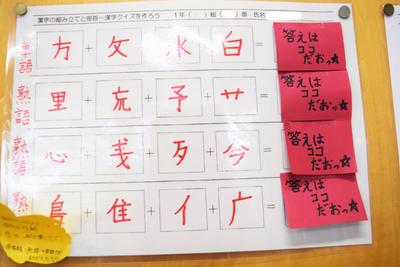 漢字の組み立てと部首～漢字クイズを作ろう 1年( )組( )番 氏名
語 方 + 攵 + 水 + 白 = 答えは
ココ
だおっ☆
熟語 里 + 巟 + 予 + サ = 答えは
ココ
だおっ☆
熟語 心 + 戋 + 歹 + 今 = 答えは
ココ
だおっ☆
熟 + 隹 + イ + 广 = 答えは
ココ
だおっ☆